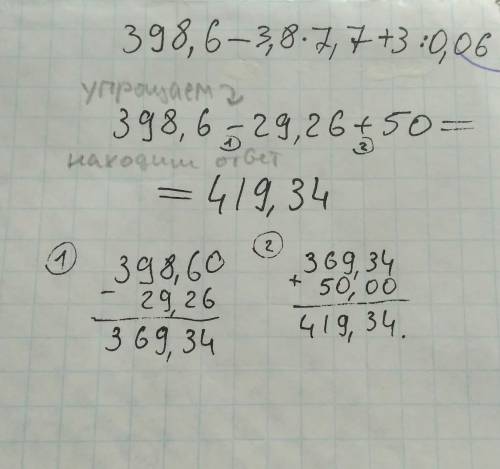 398,6-3,8·7,7+3:0,06
упрощаем
398,6-29,26+50=
1 2
находим ответ
=419,34
1 398,60
-29,26
369,34
2 369,34
+50,00
419,34.